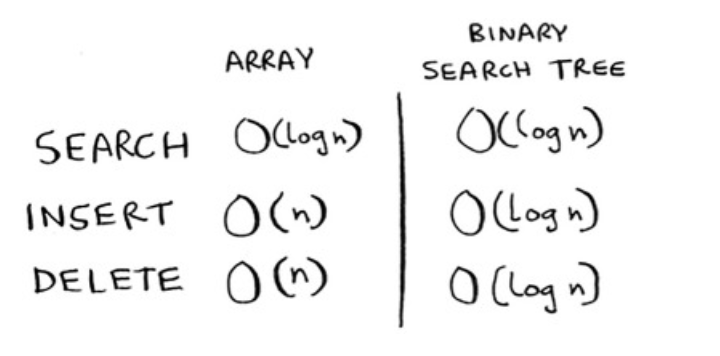 BINARY
ARRAY SEARCH TREE
SEARCH O(log n) O(log n)
INSERT O(n) O(log n)
DELETE O(n) O(log n)